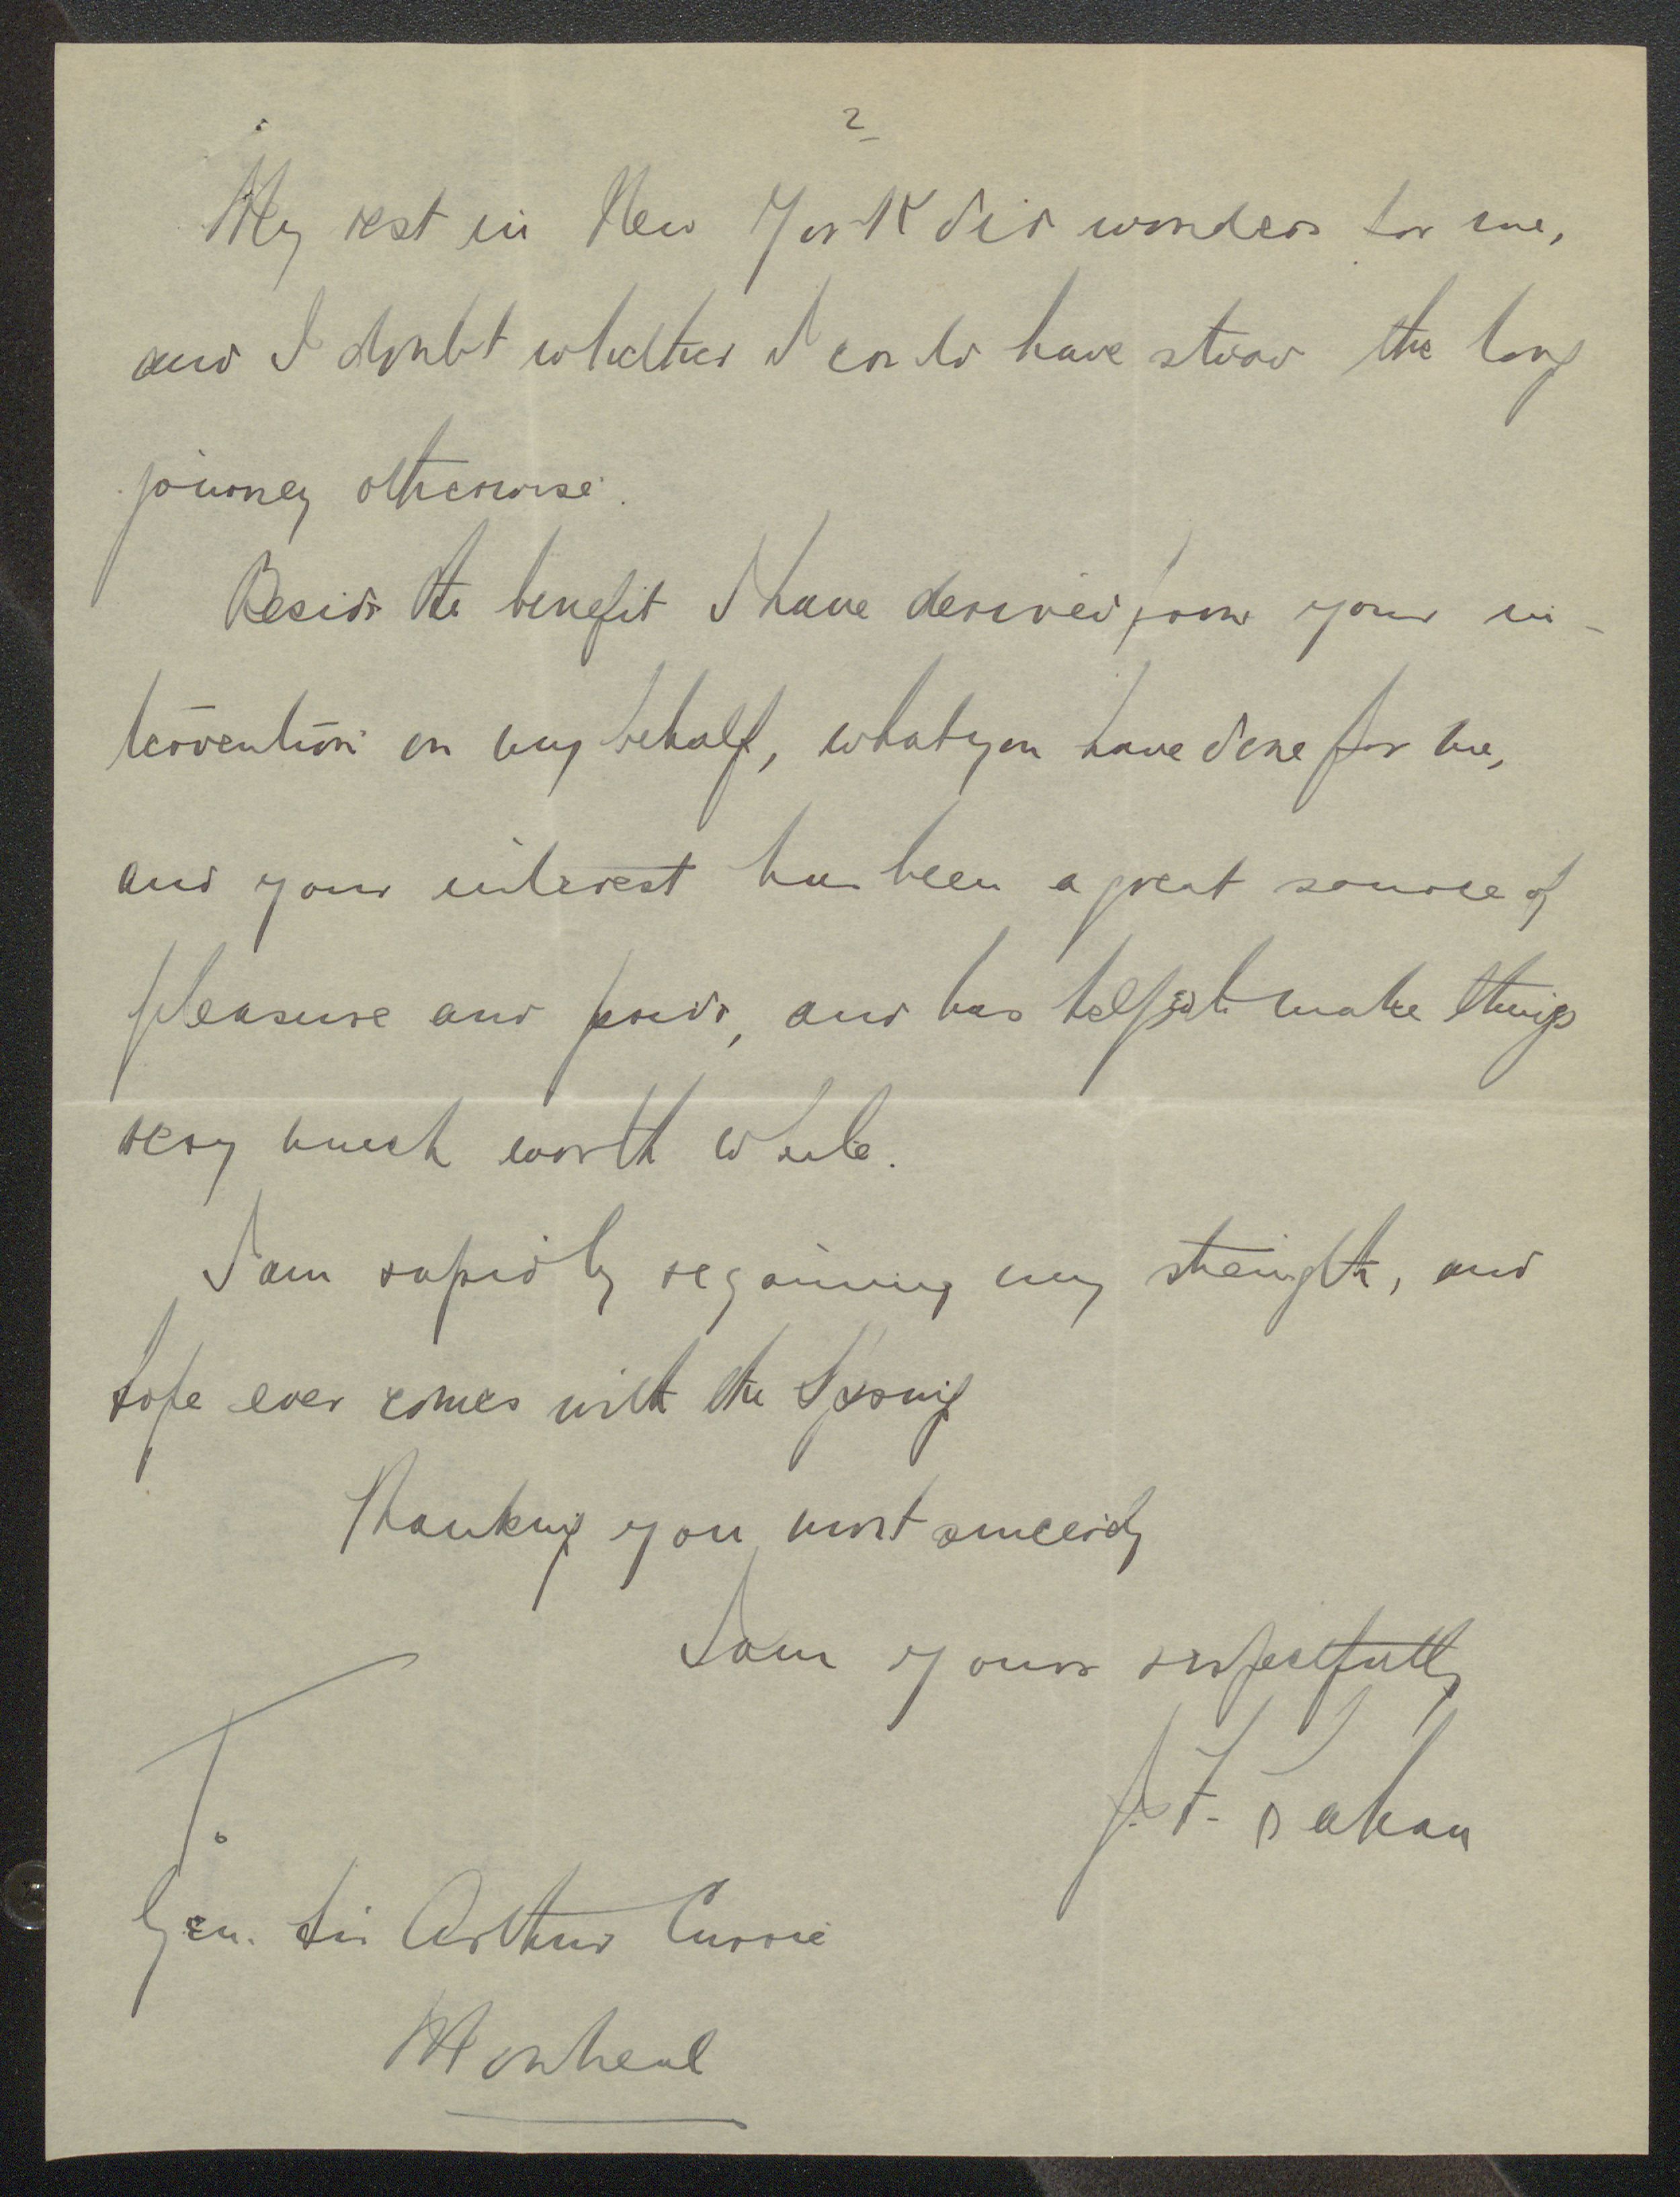 2
My rest in New York did wonders for me,
and I doubt whether I could have stood the long
journey otherwise.
Beside the benefit I have derived from your in-
tervention on my behalf, what you have done for me,
and your interest has been a great source of
pleasure and pride, and has helped to make things
very much worth while.
I am rapidly regaining my strength, and
hope ever comes with the Spring
Thanking you most sincerely
I am yours respectfully
J. F.
To
Gen. Sir Arthur Currie
Montreal